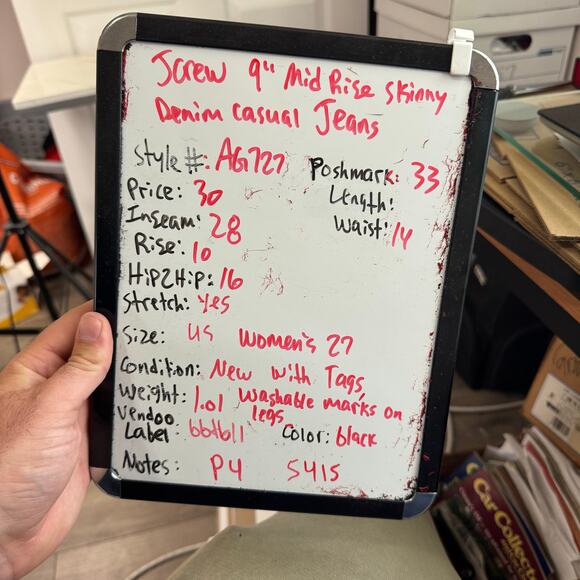 Jcrew 9" Mid Rise Skinny
Denim casual Jeans
Style #: AG727
Poshmark: 33
Price: 30
Length:
Inseam: 28
Waist: 14
Rise: 10
Hip2Hip: 16
Stretch: Yes
Size: US Women's 27
Condition: New with Tags,
Weight: 1.01 Washable marks on
legs
Vendoo
Label bbtb11 Color: black
Notes: P4 S41S
Car Collect